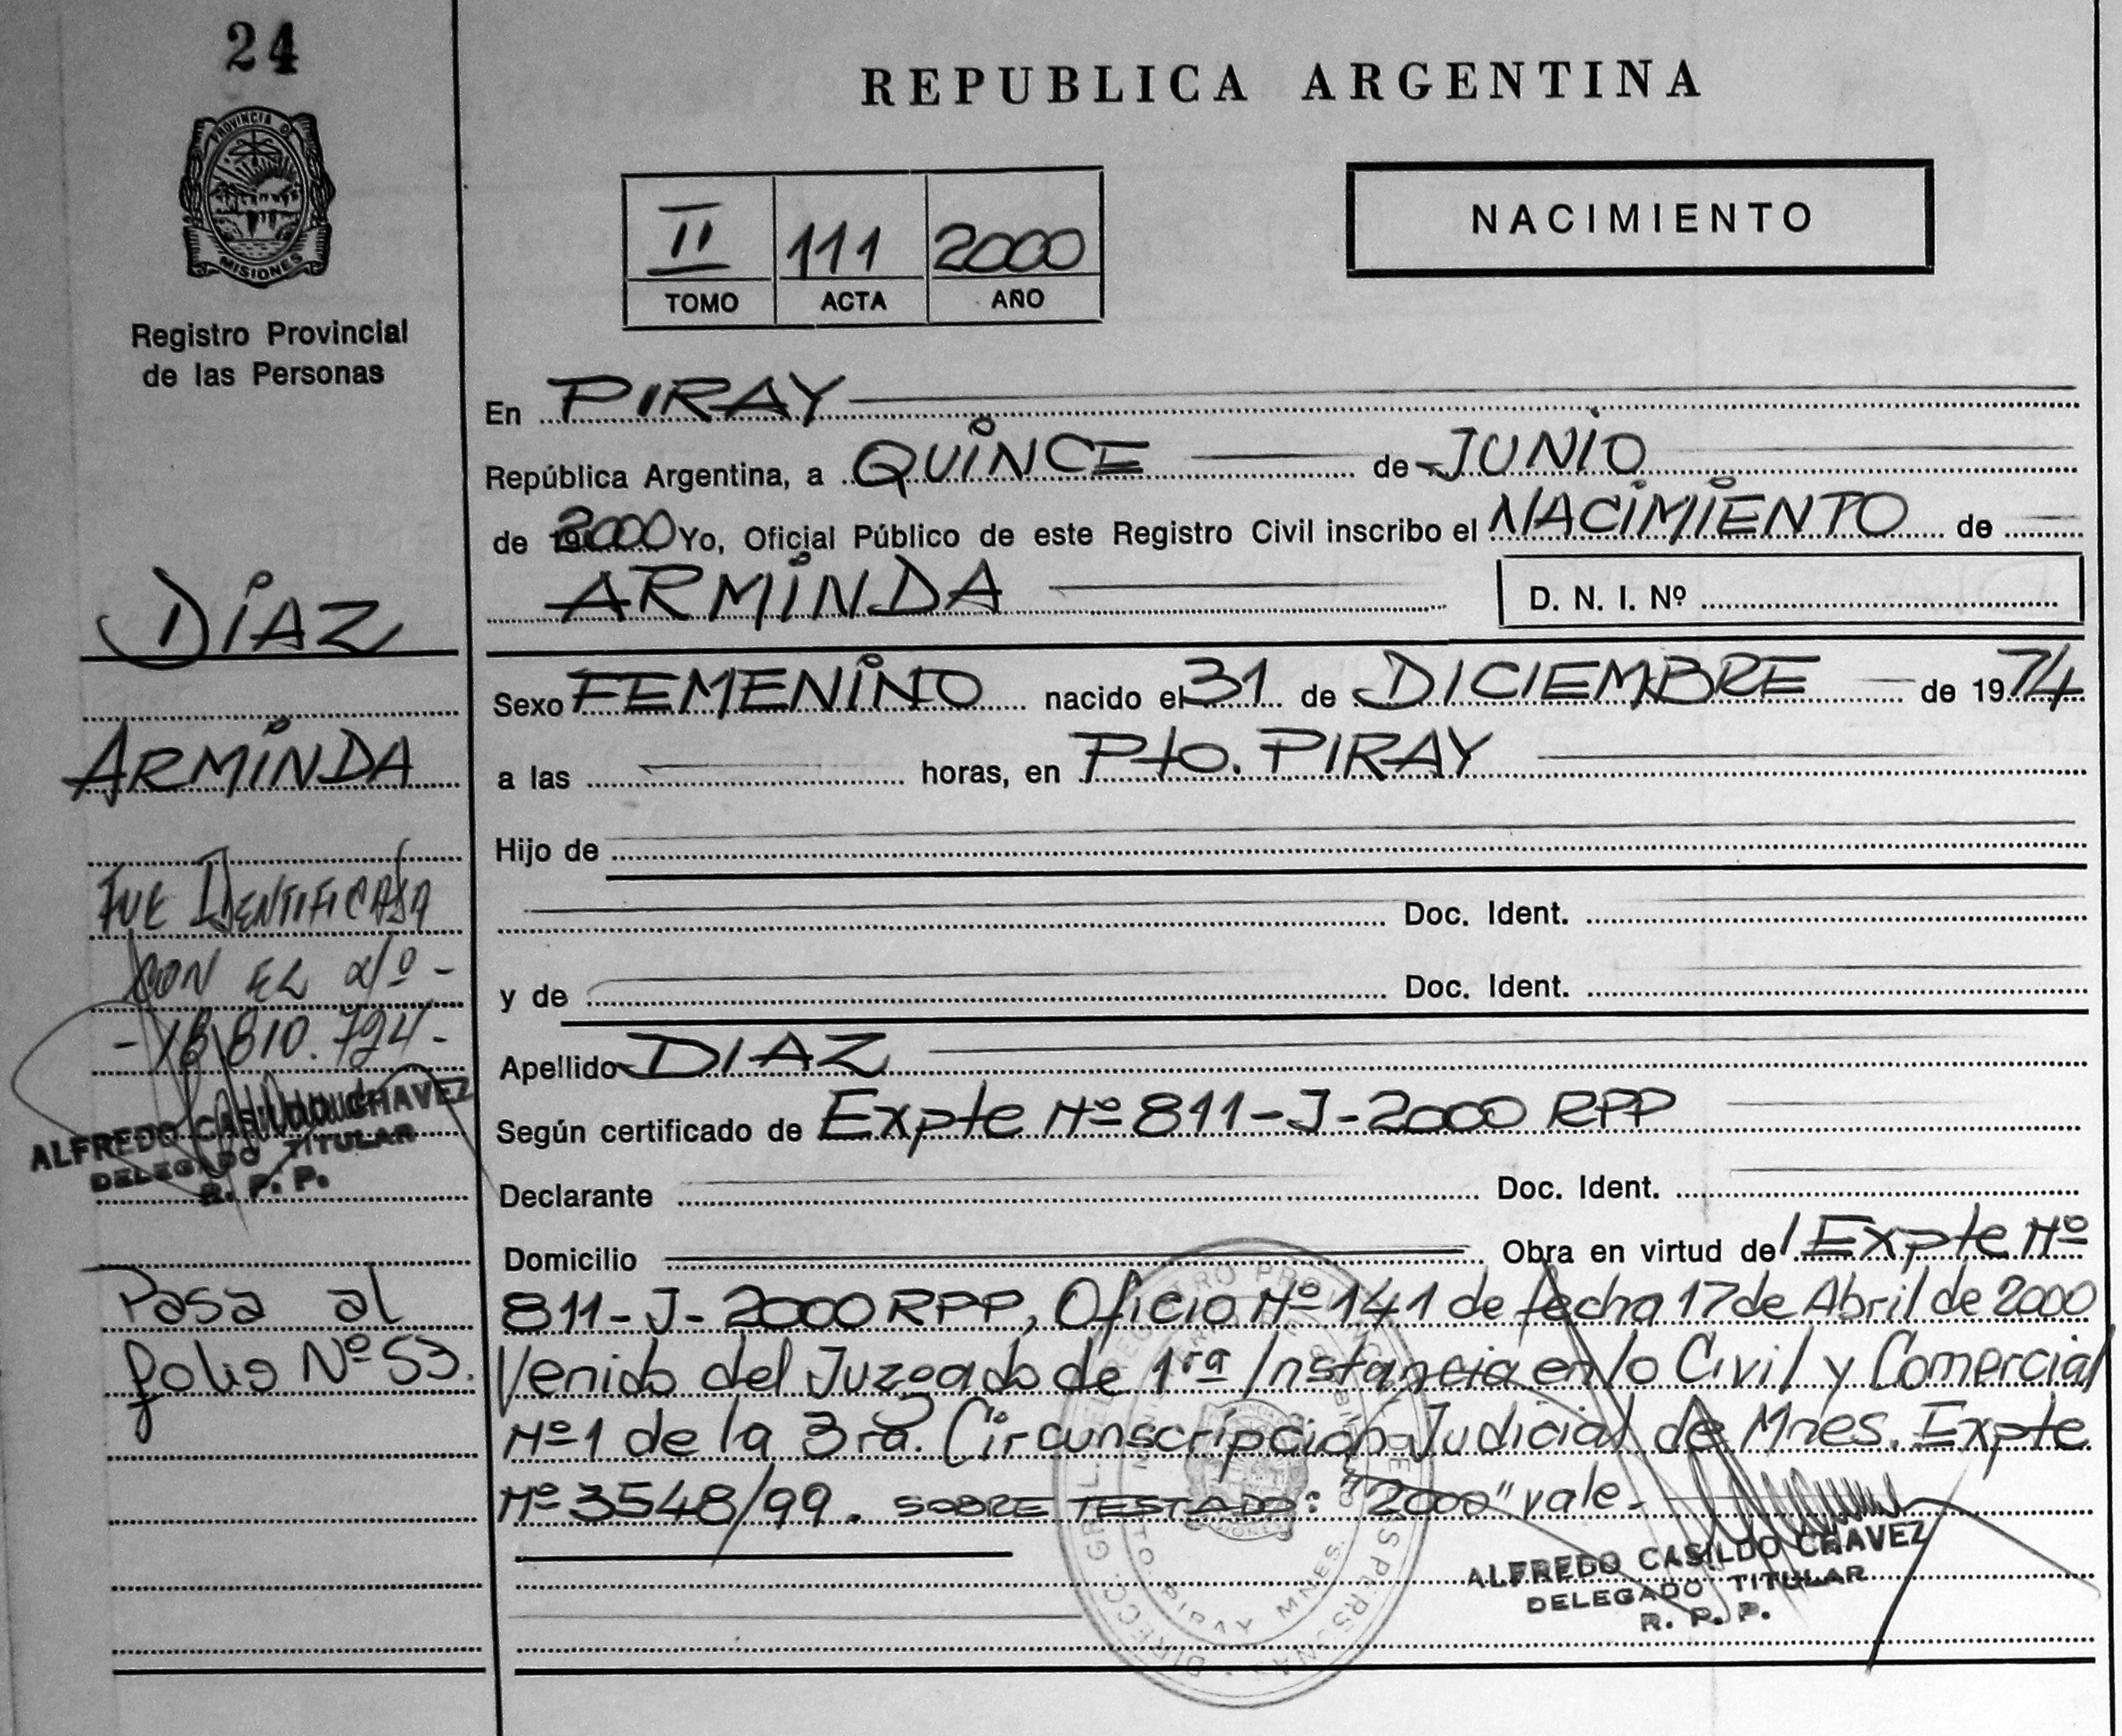 24
PROVINCIA D
MISIONES
Registro Provincial
de las Personas
DIAZ
ARMINDA
FUE IDENTIFICADA
CON EL Nº -
- 18.810.724 -
ALFREDO CASILDO CHAVEZ
DELEGADO TITULAR
R. P. P.
Pasa al
folio Nº 53.
REPUBLICA ARGENTINA
II 111 2000
TOMO ACTA AÑO
NACIMIENTO
En PIRAY
República Argentina, a QUINCE de JUNIO
de 2000 Yo, Oficial Público de este Registro Civil inscribo el NACIMIENTO de
ARMINDA D. N. I. Nº
Sexo FEMENINO nacido el 31 de DICIEMBRE de 1974
a las horas, en Pto. PIRAY
Hijo de
Doc. Ident.
y de Doc. Ident.
Apellido DIAZ
Según certificado de Expte Nº 811-J-2000 RPP
Declarante Doc. Ident.
Domicilio Obra en virtud de/ Expte Nº
811-J-2000 RPP, Oficio Nº 141 de fecha 17 de Abril de 2000
Venido del Juzgado de 1ra Instancia en lo Civil y Comercial
Nº 1 de la 3ra. Circunscripcion Judicial de Mnes. Expte
Nº 3548/99. SOBRE TESTADO: "2000" vale.
ALFREDO CASILDO CHAVEZ
DELEGADO TITULAR
R. P. P.